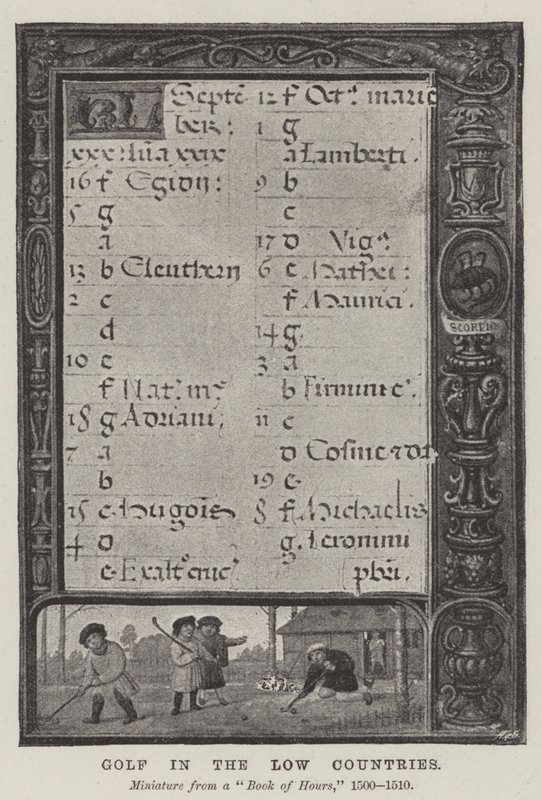 KL Septē
ber:
xxx: lūa xxix
16 f Egidij:
5 g
a
13 b Eleutherij
2 c
d
10 e
f Natᵃ. mᵉ.
18 g Adriani.
7 a
b
15 c
4 d
e Exaltᵒ cruc'
12 f Octᵃ. marie
1 g
a Lamberti.
9 b
c
17 d Vigᵃ.
6 e Mathei:
f Maurici.
14 g
3 a
b Firmini e'.
11 c
d Cosme ⁊ da
19 e
8 f Michaelis
g Ieronimi
pbri.
SCORPIO
GOLF IN THE LOW COUNTRIES.
Miniature from a "Book of Hours," 1500–1510.